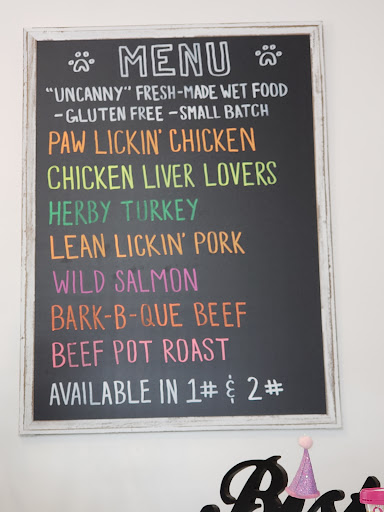 MENU
"UNCANNY" FRESH-MADE WET FOOD
-GLUTEN FREE -SMALL BATCH
PAW LICKIN' CHICKEN
CHICKEN LIVER LOVERS
HERBY TURKEY
LEAN LICKIN' PORK
WILD SALMON
BARK-B-QUE BEEF
BEEF POT ROAST
AVAILABLE IN 1# & 2#